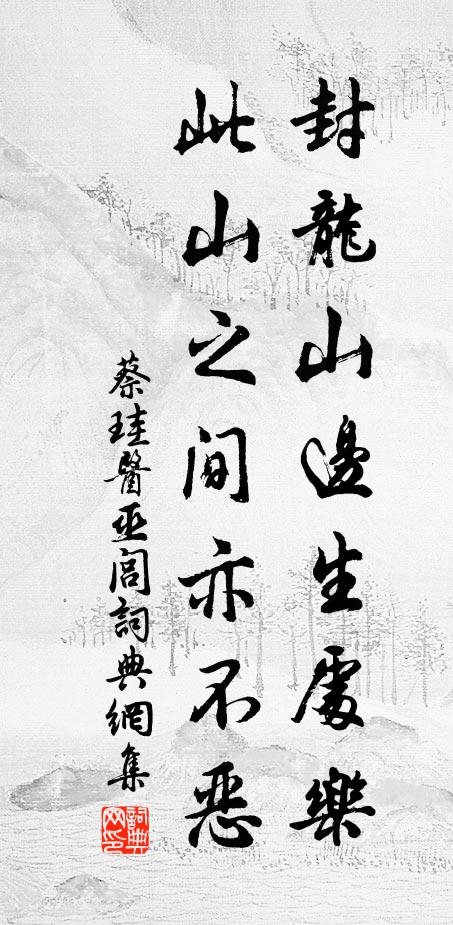 封龍山邊生處樂
此山之間亦不惡
蔡珪醫巫閭詞典網集
詞典网印